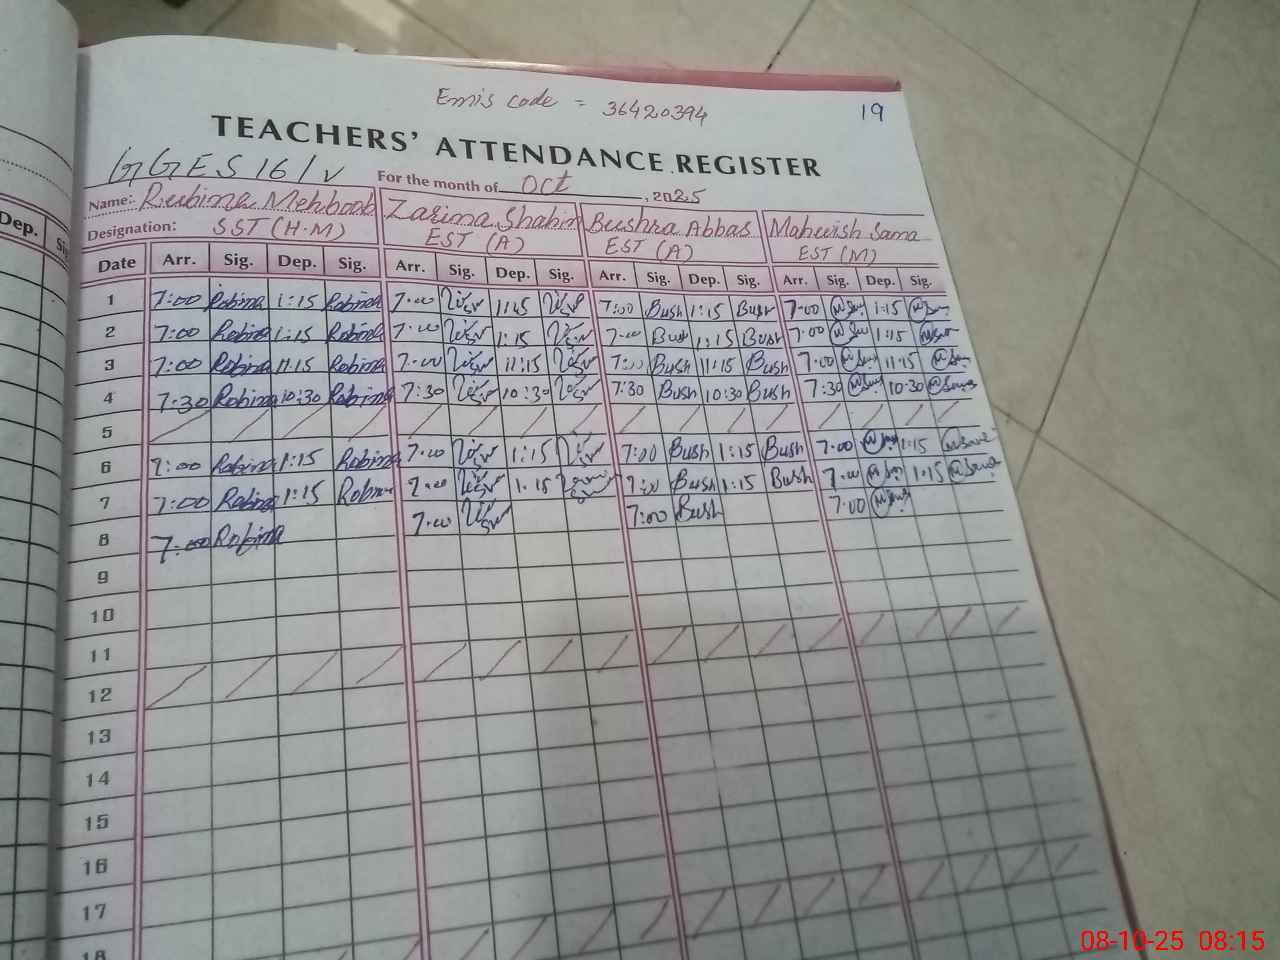 Emis code = 36420394
19
TEACHERS' ATTENDANCE REGISTER
GGES 161/
For the month of Oct, 2025
Name:- Rubina Mehboob Zarina Shahin Bushra Abbas Mahwish Sama
Designation: SST (H.M) EST (A) EST (A) EST (M)
Dep.
Date Arr. Sig. Dep. Sig. Arr. Sig. Dep. Sig. Arr. Sig. Dep. Sig. Arr. Sig. Dep. Sig.
1 7:00 Robina 1:15 Robina 7:00 7:00 Bush 1:15 Bush 7:00 1:15
2 7:00 Robina 1:15 Robina 7:00 1:15 7:00 Bush 1:15 Bush 7:00 1:15
3 7:00 Robina 11:15 Robina 7:00 11:15 7:00 Bush 11:15 Bush 7:00 11:15
4 7:30 Robina 10:30 Robina 7:30 10:30 7:30 Bush 10:30 Bush 7:30 10:30
5
6 7:00 Robina 1:15 Robina 7:00 1:15 7:00 Bush 1:15 Bush 7:00 1:15
7 7:00 Robina 1:15 Robina 7:00 1:15 7:00 Bush 1:15 Bush 7:00 1:15
8 7:00 Robina 7:00 7:00 Bush 7:00
9
10
11
12
13
14
15
16
17
18
08-10-25 08:15